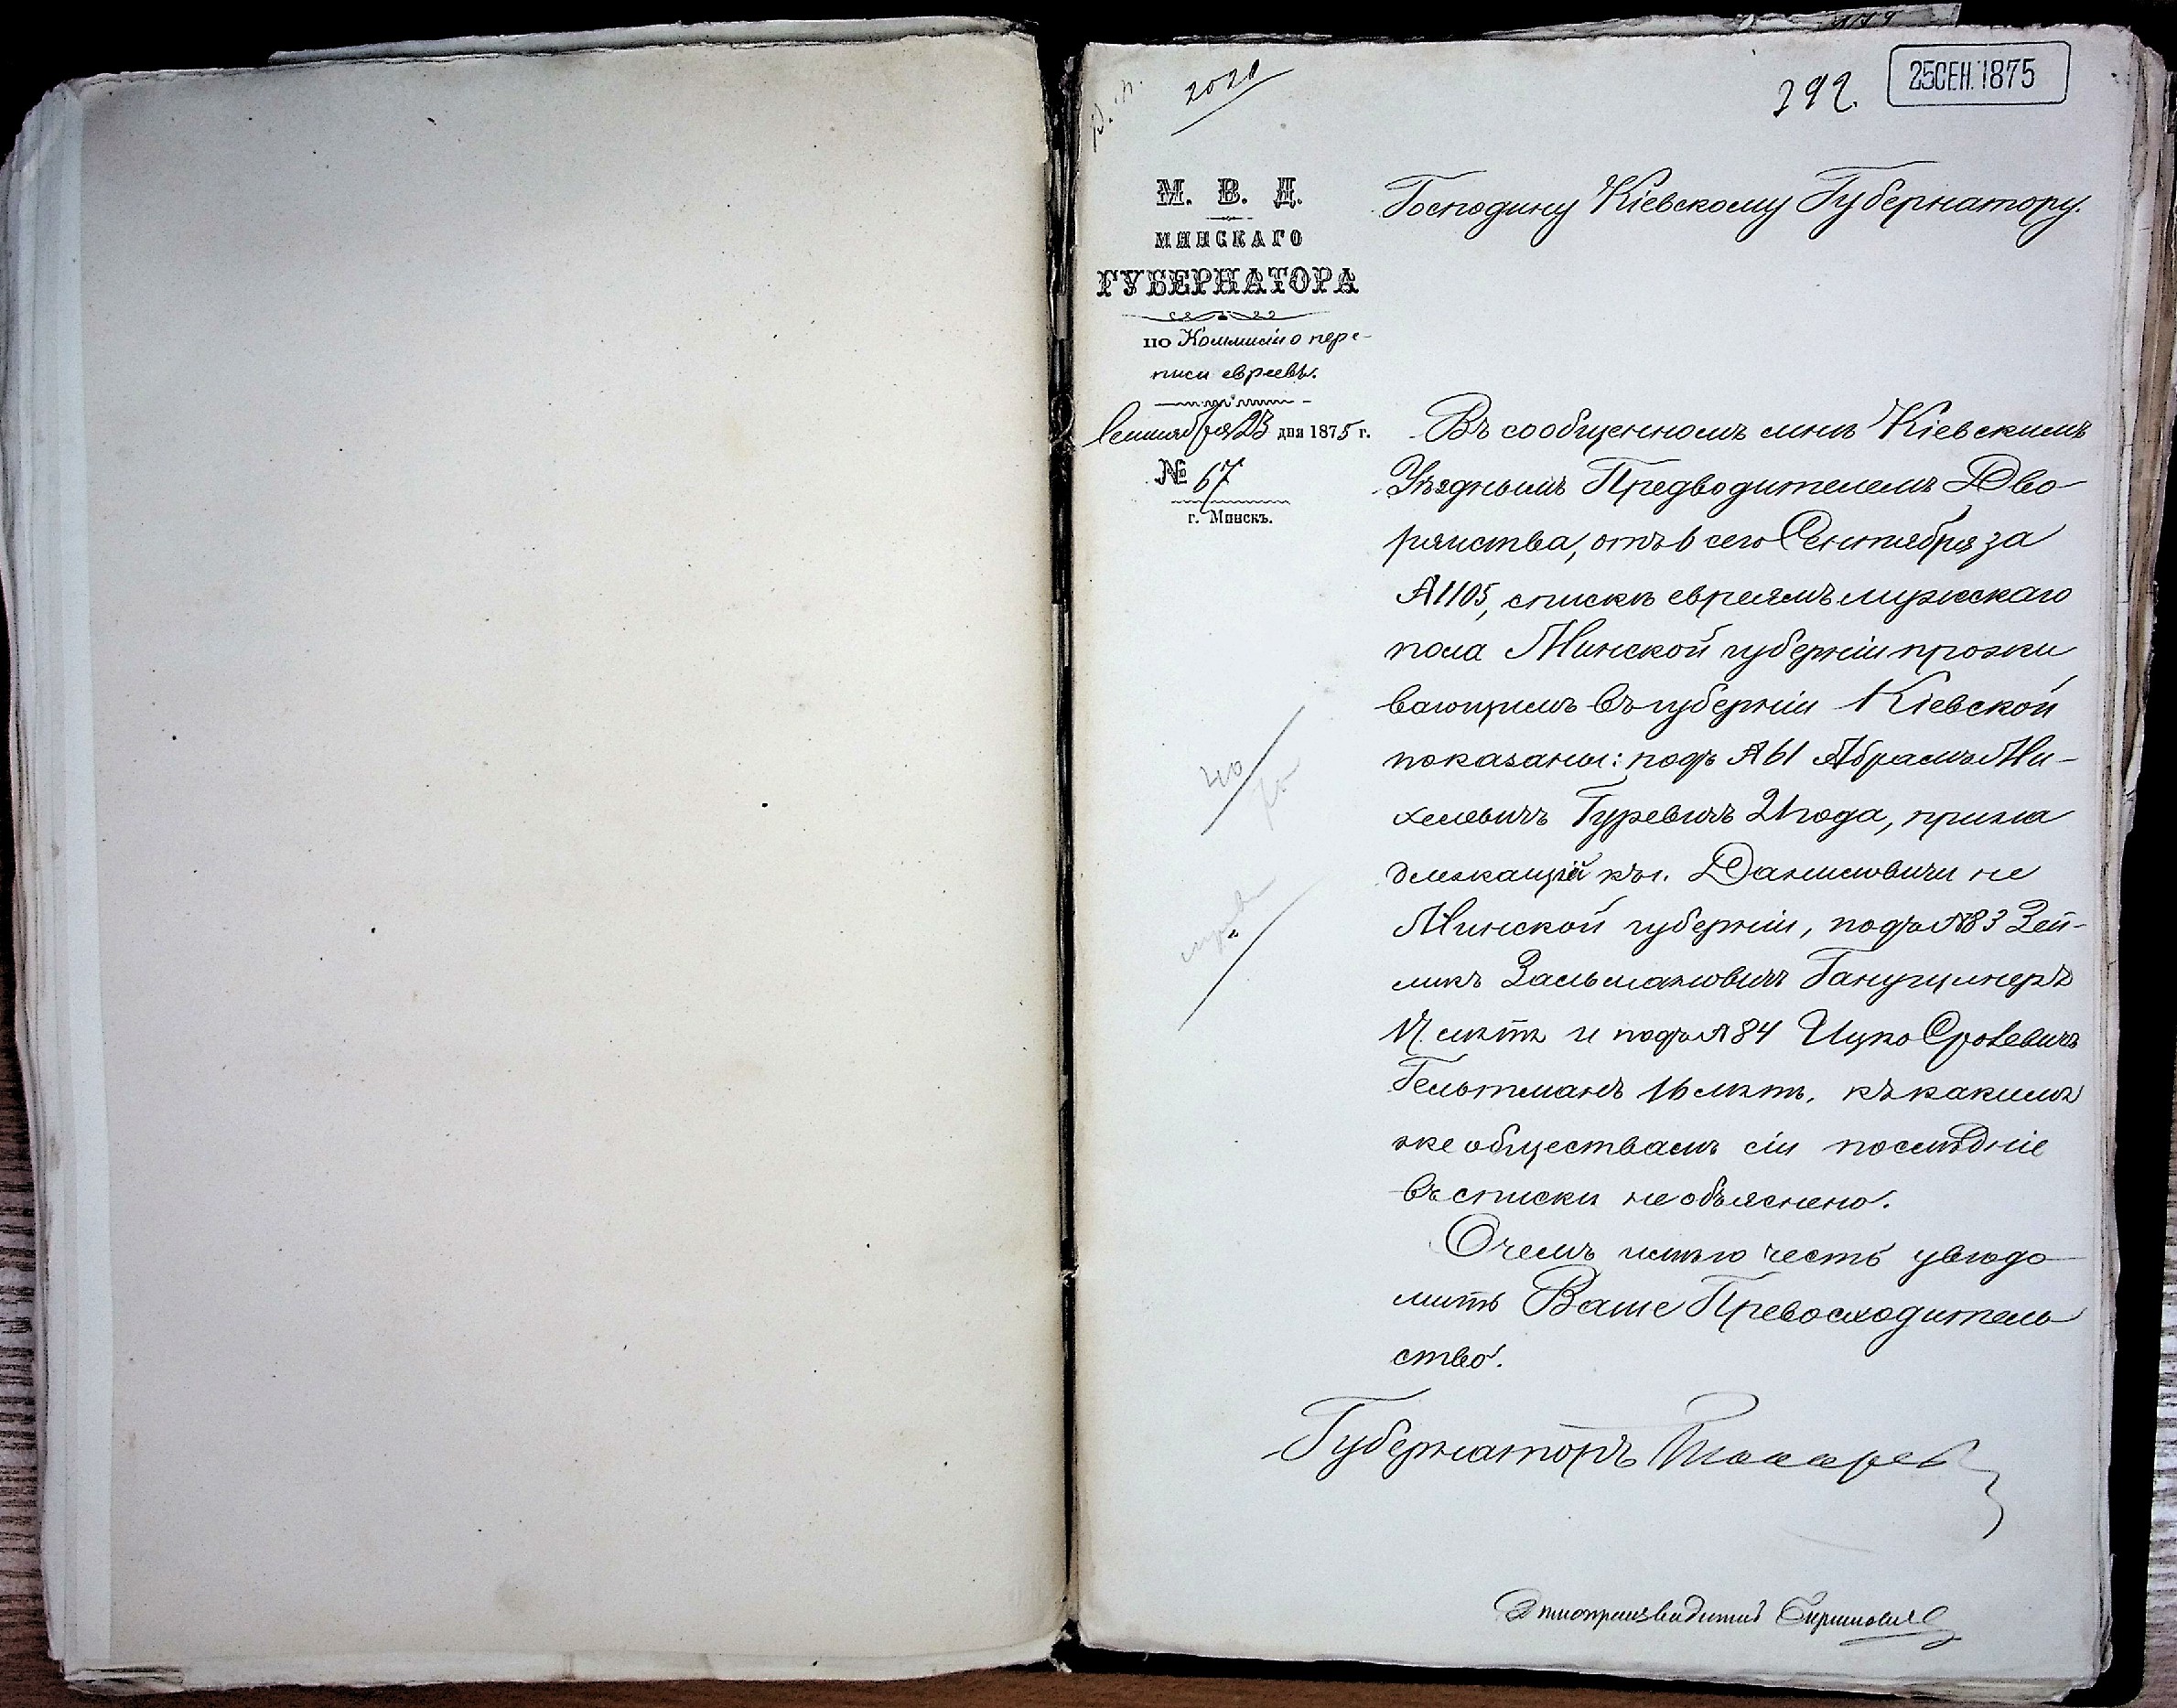 2020
292.
25 СЕН. 1875
М. В. Д.
МИНСКАГО
ГУБЕРНАТОРА
по Коммисіи о пере-
писи евреевъ.
Сентября 23 дня 1875 г.
№ 67
г. Минскъ.
Господину Кіевскому Губернатору.
Въ сообщенномъ мнѣ Кіевскимъ
Уѣзднымъ Предводителемъ Дво-
рянства, отъ 6 сего Сентября за
№ 1105, спискѣ евреямъ мужескаго
пола Минской губерніи прожи
вающимъ въ губерніи Кіевской
показаны: подъ № 61 Абрамъ Ми-
хелевичъ Гуревичъ 21 года, прина
длежащій къ м. Даниловичи не
Минской губерніи, подъ № 83 Зей-
ликъ Зальмановичъ
17 лѣтъ и подъ № 84 Ицко Сролевичъ
Гельтманъ 16 лѣтъ, къ какимъ
же обществамъ сіи послѣдніе
въ списки не объяснено.
О чемъ имѣю честь увѣдо
мить Ваше Превосходитель
ство.
Губернаторъ Токарев
Дѣлопроизводитель